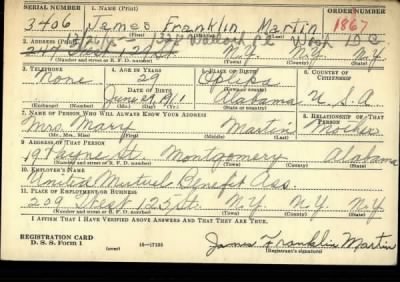 SERIAL NUMBER 1. NAME (Print) ORDER NUMBER
3406 James Franklin Martin 1867
(First) (Middle) (Last)
2. ADDRESS (Print)
N.Y. N.Y. N.Y.
(Number and street or R. F. D. number) (Town) (County) (State)
3. TELEPHONE 4. AGE IN YEARS 5. PLACE OF BIRTH 6. COUNTRY OF CITIZENSHIP
None 29 Opelika
DATE OF BIRTH
June 1911 Alabama U.S.A.
(Exchange) (Number) (Mo.) (Day) (Yr.) (State or country)
7. NAME OF PERSON WHO WILL ALWAYS KNOW YOUR ADDRESS 8. RELATIONSHIP OF THAT PERSON
Mrs. Mary Martin Mother
(Mr., Mrs., Miss) (First) (Middle) (Last)
9. ADDRESS OF THAT PERSON
19 Payne St. Montgomery Alabama
(Number and street or R. F. D. number) (Town) (County) (State)
10. EMPLOYER'S NAME
United Mutual Benefit Ass.
11. PLACE OF EMPLOYMENT OR BUSINESS
209 West 125 St. N.Y. N.Y. N.Y.
(Number and street or R. F. D. number) (Town) (County) (State)
I AFFIRM THAT I HAVE VERIFIED ABOVE ANSWERS AND THAT THEY ARE TRUE.
REGISTRATION CARD
D. S. S. Form 1 (over) 16—17105 James Franklin Martin
(Registrant's signature)